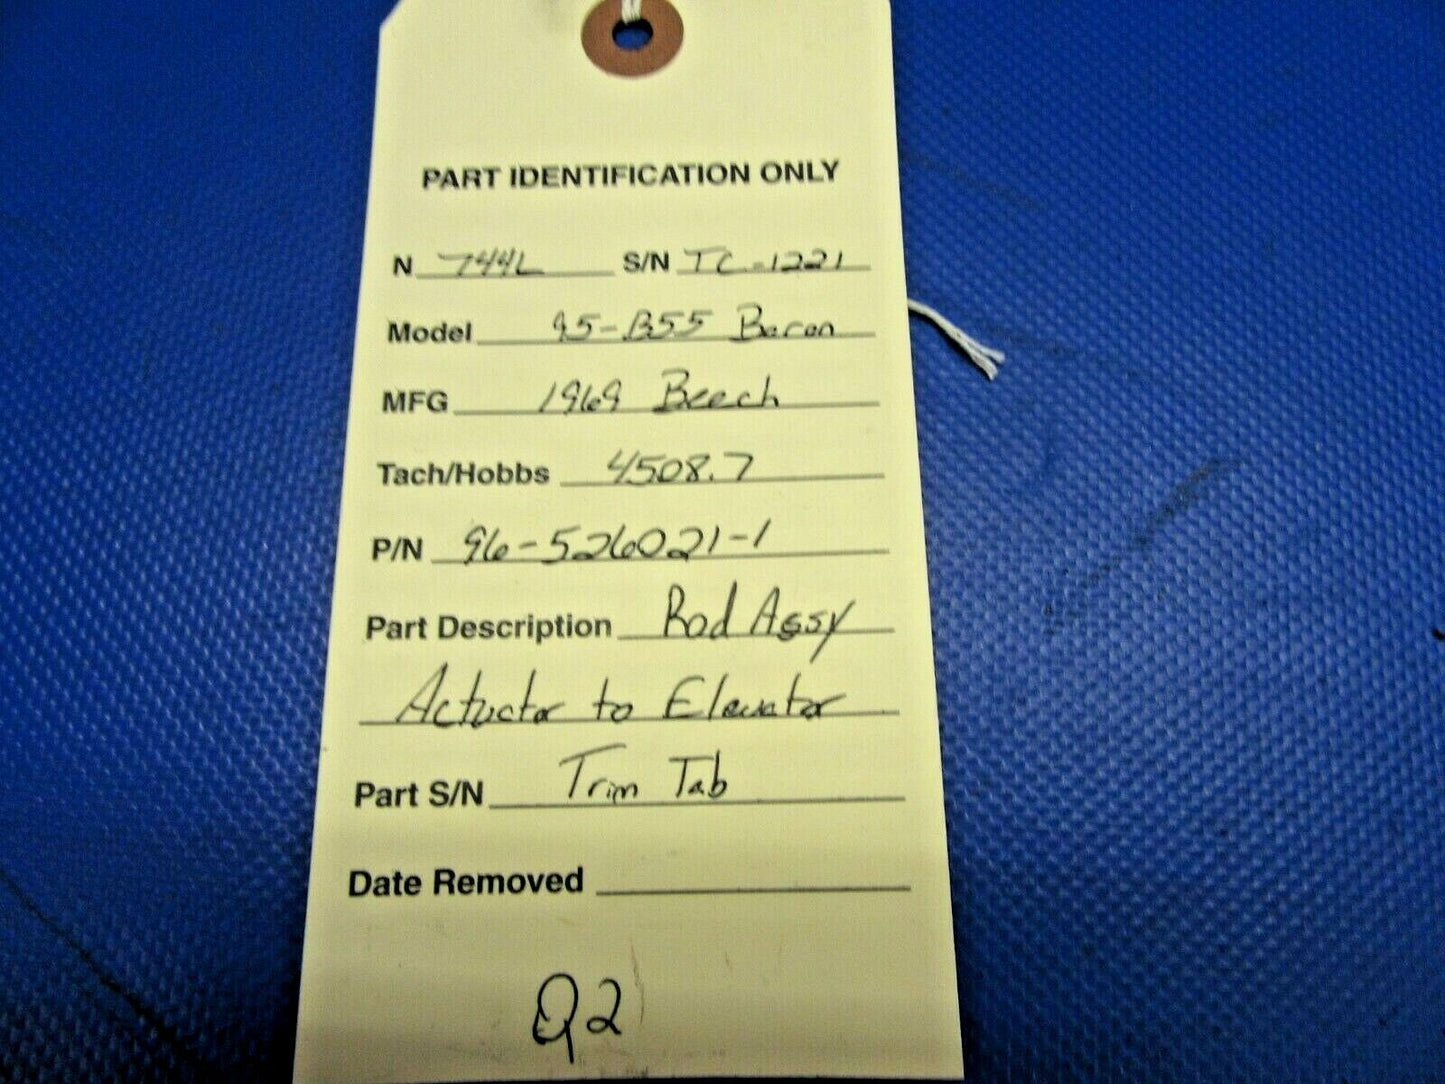 PART IDENTIFICATION ONLY
N 744L S/N TC-1221
Model 95-B55 Baron
MFG 1969 Beech
Tach/Hobbs 4508.7
P/N 96-526021-1
Part Description Rod Assy
Actuator to Elevator
Part S/N Trim Tab
Date Removed
Q2